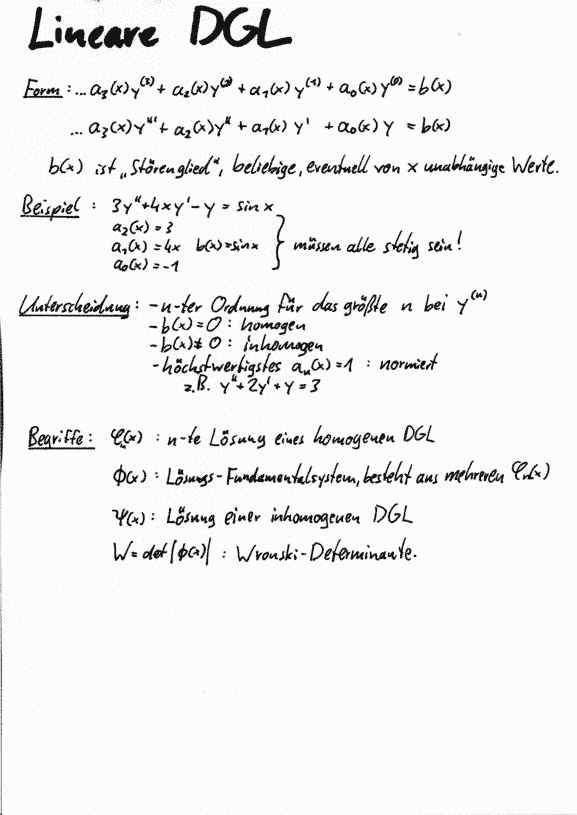 Lineare DGL
Form: ... a₃(x)y⁽³⁾ + a₂(x)y⁽²⁾ + a₁(x)y⁽¹⁾ + a₀(x)y⁽⁰⁾ = b(x)
... a₃(x)y''' + a₂(x)y'' + a₁(x)y' + a₀(x)y = b(x)
b(x) ist „Störenglied“, beliebige, eventuell von x unabhängige Werte.
Beispiel: 3y''+4xy'-y = sin x
a₂(x) = 3
a₁(x) = 4x b(x)=sin x } müssen alle stetig sein!
a₀(x) = -1
Unterscheidung: -n-ter Ordnung für das größte n bei y⁽ⁿ⁾
-b(x)=0: homogen
-b(x)≠0: inhomogen
-höchstwertigstes aₙ(x)=1: normiert
z.B. y''+2y'+y=3
Begriffe: φₙ(x): n-te Lösung eines homogenen DGL
ϕ(x): Lösungs-Fundamentalsystem, besteht aus mehreren φₙ(x)
ψ(x): Lösung einer inhomogenen DGL
W=det|ϕ(x)|: Wronski-Determinante.